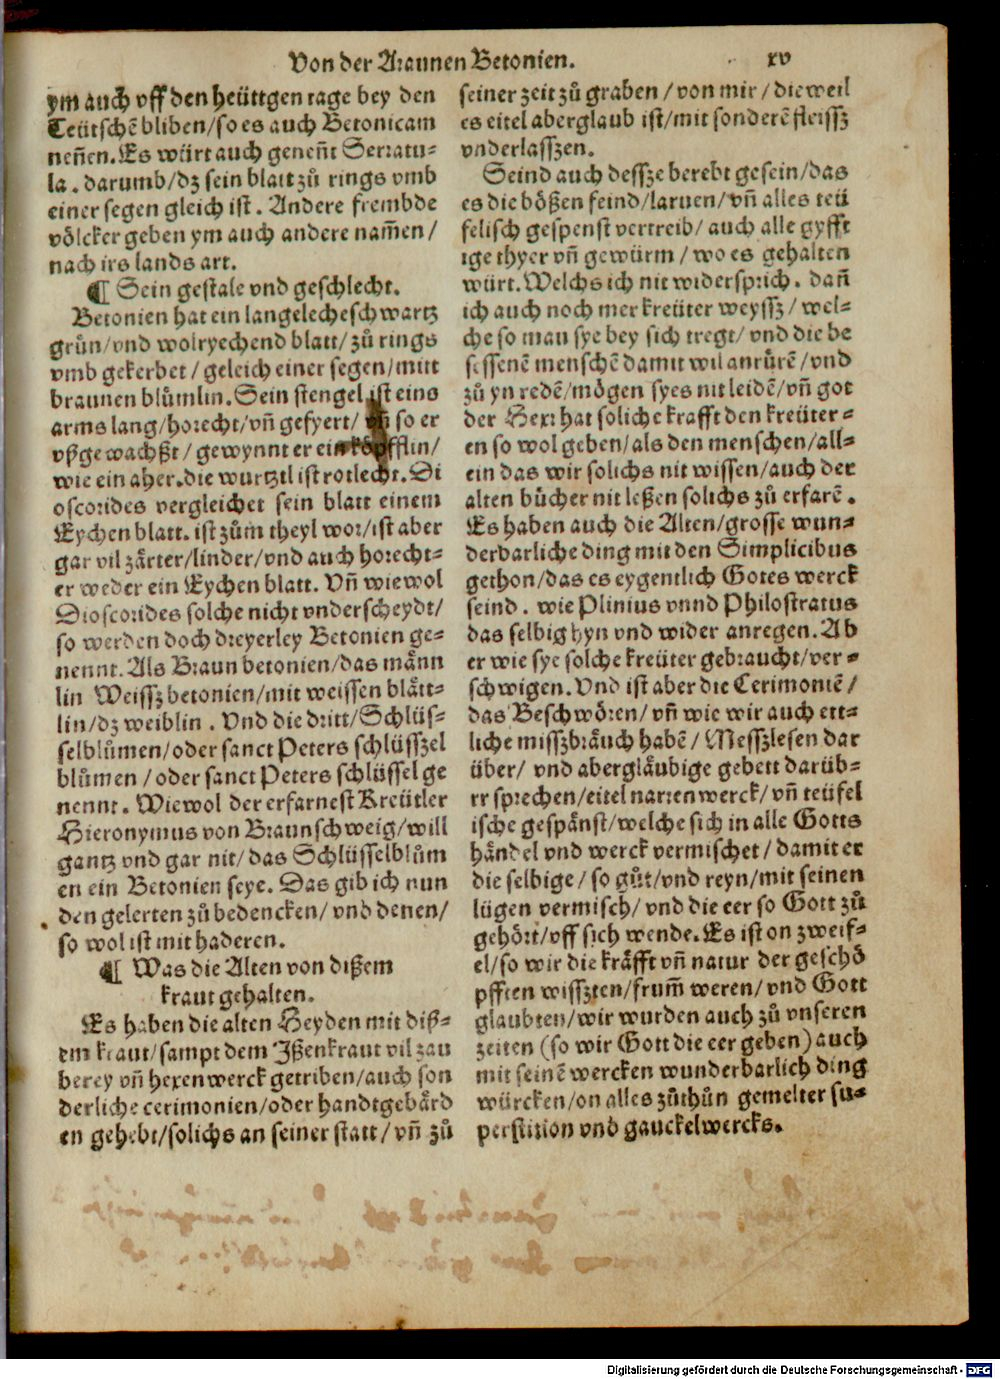 Von der Braunen Betonien. xv
ym auch vff den heüttgen tage bey den
Teütschē bliben/so es auch Betonicam
neñen. Es würt auch geneñt Serratu⸗
la. darumb/dz sein blatt zů rings vmb
einer segen gleich ist. Andere frembde
völcker geben ym auch andere nam̄en/
nach irs lands art.
¶ Sein gestale vnd geschlecht.
Betonien hat ein langelecheschwartz
grůn/vnd wolryechend blatt/zů rings
vmb gekerbet/geleich einer segen/mitt
braunen blůmlin. Sein stengel ist eins
arms lang/horecht/vñ gefyert/ vñ so er
vßgewachßt/gewynnt er ein köpfflin/
wie ein aher. die wurtztl ist rotlecht. Di
oscorides vergleichet sein blatt einem
Eychen blatt. ist zům theyl wor/ist aber
gar vil zärter/linder/vnd auch horecht⸗
er weder ein Eychen blatt. Vñ wiewol
Dioscorides solche nicht vnderscheydt/
so werden doch dreyerley Betonien ge⸗
nennt. Als Braun betonien/das männ
lin Weissz betonien/mit weissen blätt⸗
lin/dz weiblin. Vnd die dritt/Schlüs⸗
selblůmen/oder sanct Peters schlüsszel
blůmen/oder sanct Peters schlüssel ge
nennt. Wiewol der erfarnest Kreütler
Hieronymus von Braunschweig/will
gantz vnd gar nit/das Schlüsselblům
en ein Betonien seye. Das gib ich nun
den gelerten zů bedencken/vnd denen/
so wol ist mit haderen.
¶ Was die Alten von dißem
kraut gehalten.
Es haben die alten Heyden mit diß⸗
em kraut/sampt dem Ißenkraut vil zau
berey vñ hexenwerck getriben/auch son
derliche cerimonien/oder handtgebärd
en gehebt/solichs an seiner statt/vñ zů
seiner zeit zů graben/von mir/dieweil
es eitel aberglaub ist/mit sonderē fleissz
vnderlasszen.
Seind auch dessze berebt gesein/das
es die bößen feind/laruen/vñ alles teü
felisch gespenst vertreib/auch alle gyfft
ige thyer vñ gewürm/wo es gehalten
würt. Welchs ich nit widersprich. dañ
ich auch noch mer kreüter weyssz/wel⸗
che so man sye bey sich tregt/vnd die be
sessenē menschē damit wil anrůrē/vnd
zů yn redē/mögen syes nit leidē/vñ got
der Herr hat soliche krafft den kreüter⸗
en so wol geben/als den menschen/all⸗
ein das wir solichs nit wissen/auch der
alten bůcher nit leßen solichs zů erfarē.
Es haben auch die Alten/grosse wun⸗
derbarliche ding mit den Simplicibus
gethon/das es eygentlich Gotes werck
seind. wie Plinius vnnd Philostratus
das selbig hyn vnd wider anregen. Ab
er wie sye solche kreüter gebraucht/ver⸗
schwigen. Vnd ist aber die Cerimoniē/
das Beschwören/vñ wie wir auch ett⸗
liche misszbräuch habē/Messzlesen dar
über/ vnd abergläubige gebett darüb⸗
er sprechen/eitel narrenwerck/vñ teüfel
ische gespänst/welche sich in alle Gotts
händel vnd werck vermischet/damit er
die selbige/so gůt/vnd reyn/mit seinen
lügen vermisch/vnd die eer so Gott zů
gehört/vff sich wende. Es ist on zweif⸗
el/so wir die kräfft vñ natur der geschö
pfften wisszten/frum̄ weren/vnd Gott
glaubten/wir wurden auch zů vnseren
zeiten (so wir Gott die eer geben) auch
mit seinē wercken wunderbarlich ding
würcken/on alles zůthůn gemelter su⸗
perstition vnd gauckelwercks.
Digitalisierung gefördert durch die Deutsche Forschungsgemeinschaft - DFG